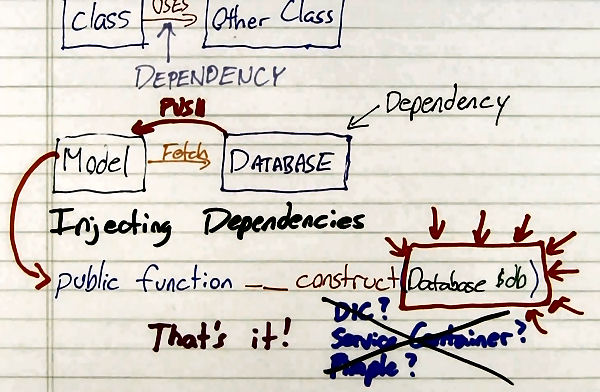 Class
USES
Other Class
DEPENDENCY
PUSH
Dependency
Model
Fetch
DATABASE
Injecting Dependencies
public function __construct(Database $db)
That's it!
DIC?
Service Container?
Pimple?